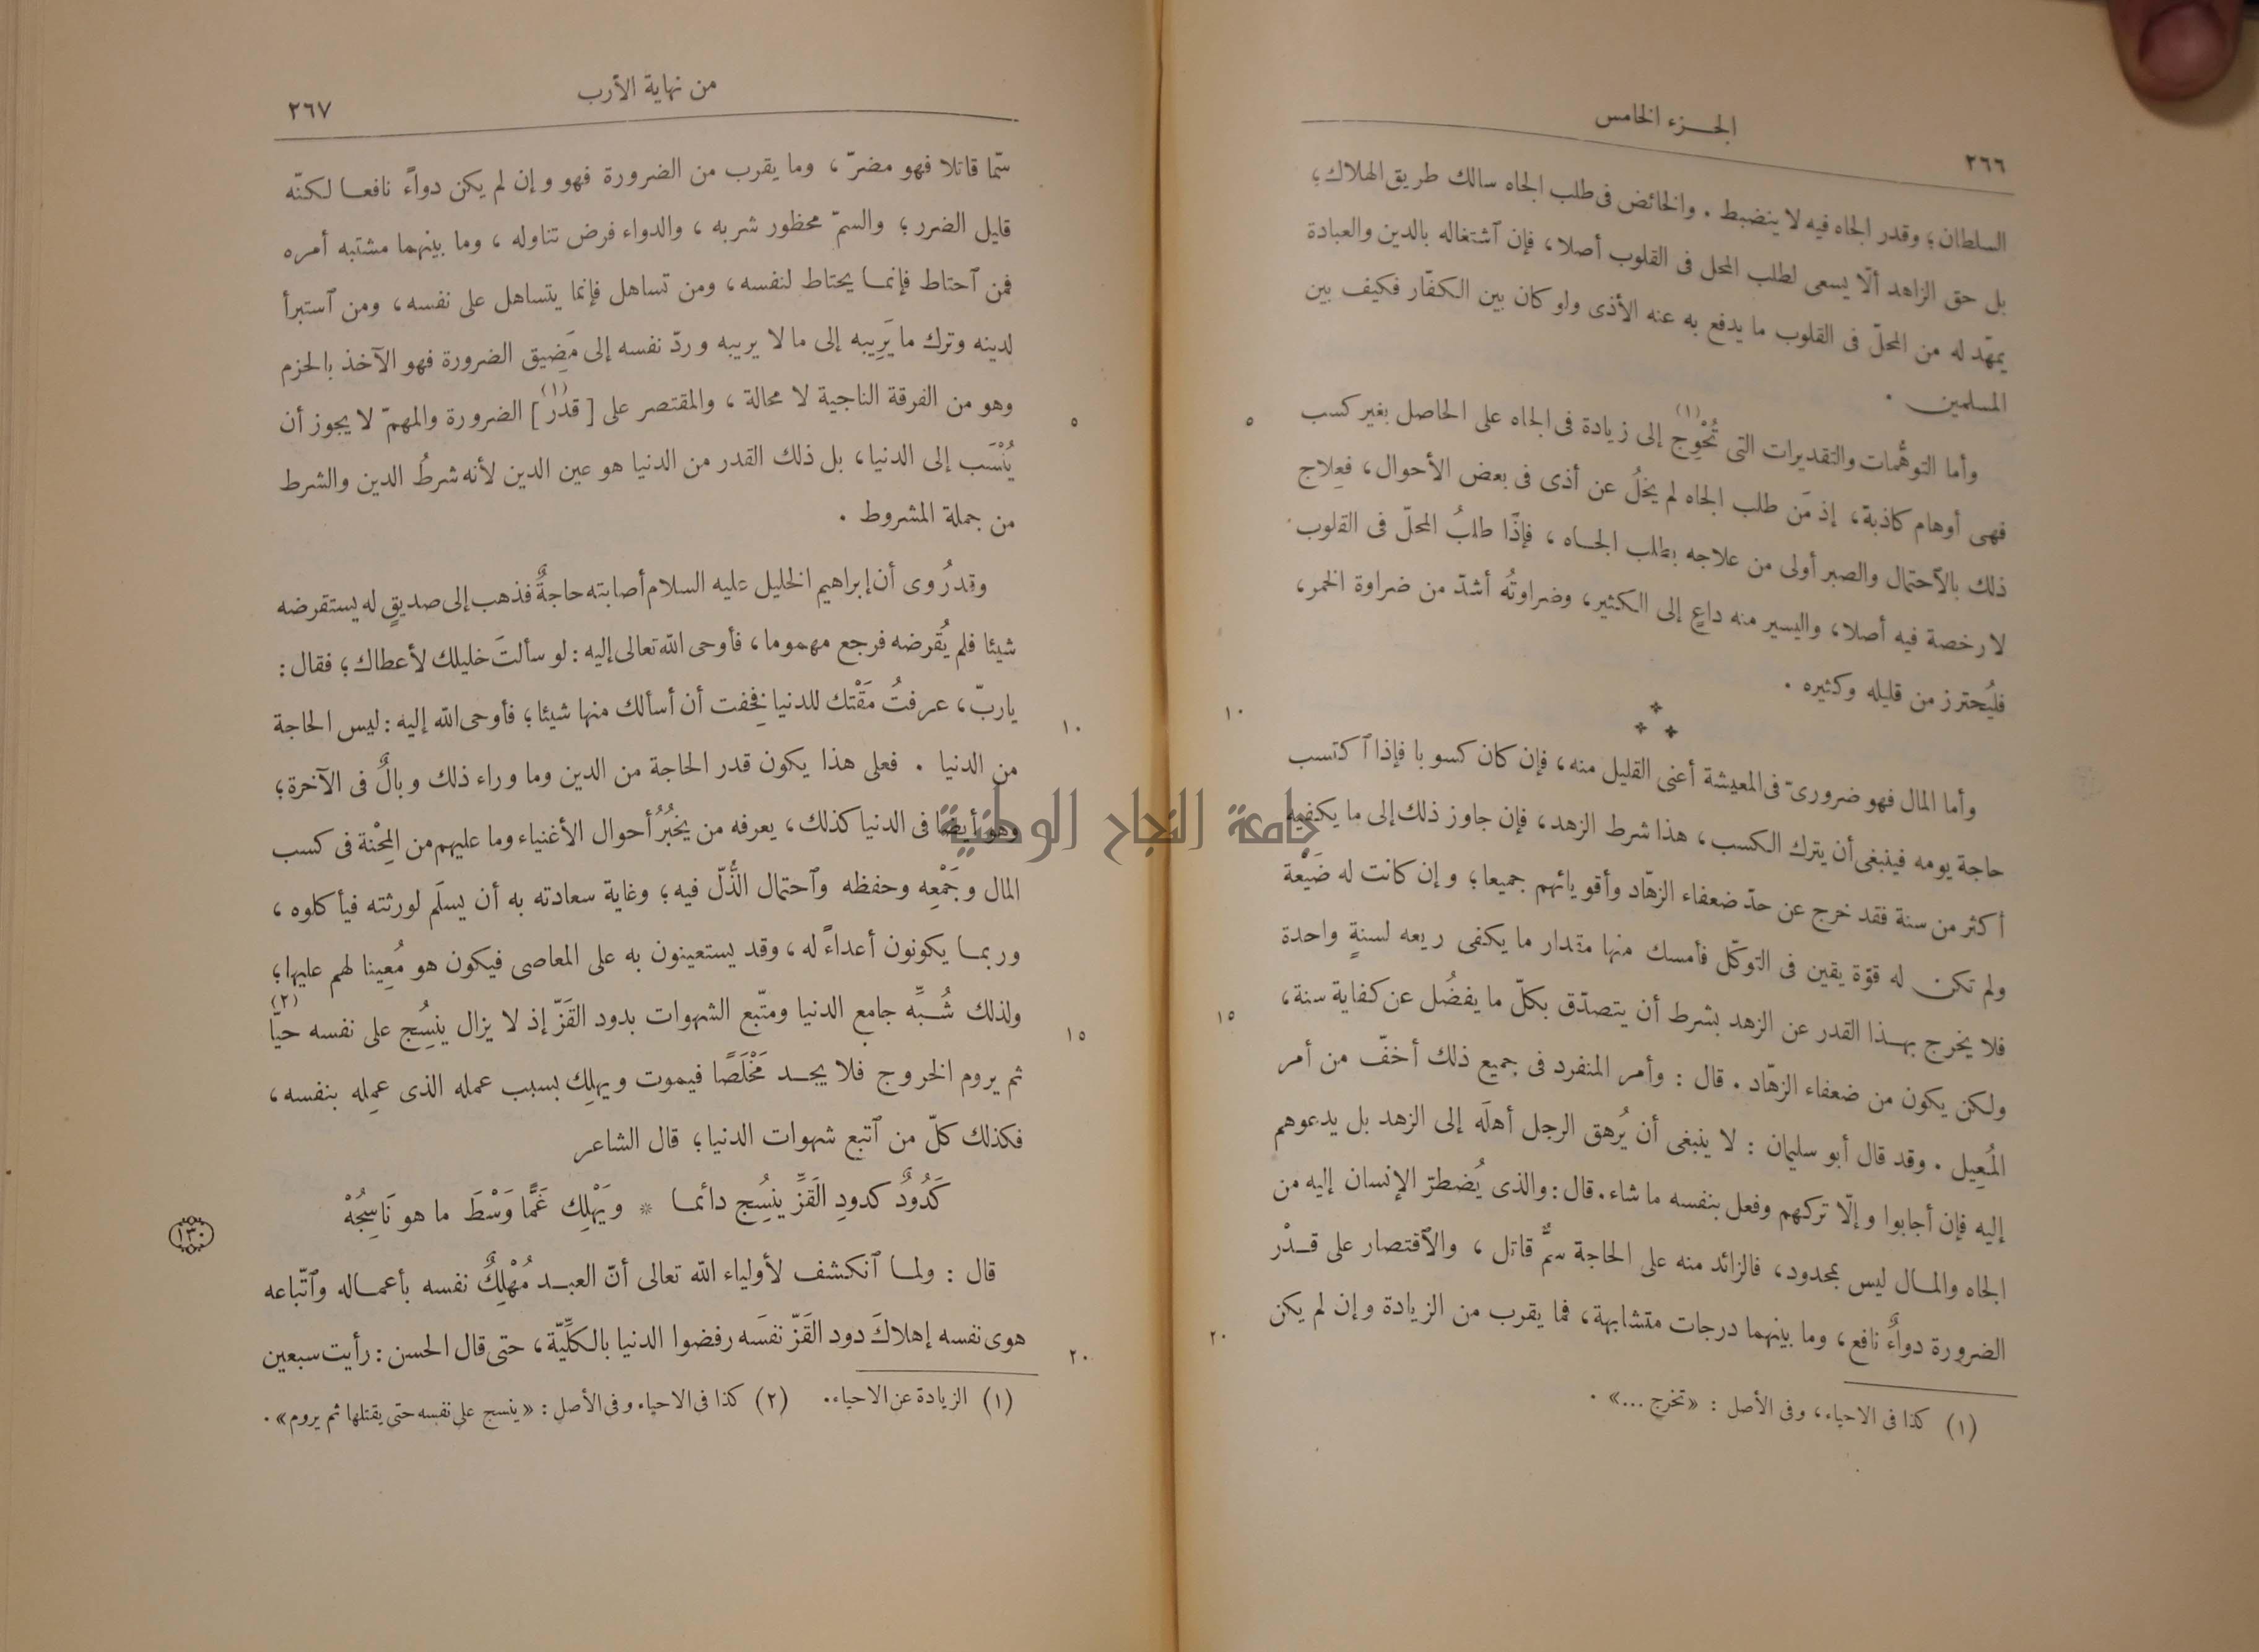 الجزء الخامس
٢٦٦
السلطان؛ وقدر الجاه فيه لا ينضبط . والخائض فى طلب الجاه سالك طريق الهلاك؛
بل حق الزاهد ألّا يسعى لطلب المحل فى القلوب أصلا، فإن ٱشتغاله بالدين والعبادة
يمهّد له من المحلّ فى القلوب ما يدفع به عنه الأذى ولو كان بين الكفّار فكيف بين
المسلمين .
وأما التوهُّمات والتقديرات التى تُحْوِج (١) إلى زيادة فى الجاه على الحاصل بغير كسب
٥
فهى أوهام كاذبة، إذ مَن طلب الجاه لم يخلُ عن أذى فى بعض الأحوال، فعِلاج
ذلك بالٱحتمال والصبر أولى من علاجه بطلب الجاه، فإذًا طلبُ المحلّ فى القلوب
لا رخصة فيه أصلا، واليسير منه داعٍ إلى الكثير، وضراوتُه أشدّ من ضراوة الخمر،
فليُحترز من قليله وكثيره .
١٠
وأما المال فهو ضرورىّ فى المعيشة أعنى القليل منه، فإن كان كسوبا فإذا ٱكتسب
حاجة يومه فينبغى أن يترك الكسب، هذا شرط الزهد، فإن جاوز ذلك إلى ما يكفيه
أكثر من سنة فقد خرج عن حدّ ضعفاء الزهّاد وأقويائهم جميعا؛ وإن كانت له ضَيْعة
ولم تكن له قوّة يقين فى التوكّل فأمسك منها مقدار ما يكفى ريعه لسنةٍ واحدة
فلا يخرج بهذا القدر عن الزهد بشرط أن يتصدّق بكلّ ما يفضُل عن كفاية سنة،
١٥
ولكن يكون من ضعفاء الزهّاد . قال : وأمر المنفرد فى جميع ذلك أخفّ من أمر
المُعِيل . وقد قال أبو سليمان : لا ينبغى أن يُرهق الرجل أهلَه إلى الزهد بل يدعوهم
إليه فإن أجابوا وإلّا تركهم وفعل بنفسه ما شاء. قال: والذى يُضطرّ الإنسان إليه من
الجاه والمال ليس بمحدود، فالزائد منه على الحاجة سمٌّ قاتل، والٱقتصار على قدْر
الضرورة دواءٌ نافع، وما بينهما درجات متشابهة، فما يقرب من الزيادة وإن لم يكن
٢٠
(١) كذا فى الاحياء، وفى الأصل : «تخرج ...» .
من نهاية الأرب
٢٦٧
سمّا قاتلا فهو مضرّ، وما يقرب من الضرورة فهو وإن لم يكن دواءً نافعا لكنّه
قليل الضرر؛ والسمّ محظور شربه، والدواء فرض تناوله، وما بينهما مشتبه أمره
فمن ٱحتاط فإنما يحتاط لنفسه، ومن تساهل فإنما يتساهل على نفسه، ومن ٱستبرأ
لدينه وترك ما يَرِيبه إلى ما لا يريبه وردّ نفسه إلى مَضِيق الضرورة فهو الآخذ بالحزم
وهو من الفرقة الناجية لا محالة، والمقتصر على [قدْر (١)] الضرورة والمهمّ لا يجوز أن
٥
يُنْسَب إلى الدنيا، بل ذلك القدر من الدنيا هو عين الدين لأنه شرطُ الدين والشرط
من جملة المشروط .
وقد رُوى أن إبراهيم الخليل عليه السلام أصابته حاجةٌ فذهب إلى صديقٍ له يستقرضه
شيئا فلم يُقرضه فرجع مهموما، فأوحى الله تعالى إليه: لو سألتَ خليلك لأعطاك؛ فقال:
ياربّ، عرفتُ مَقْتك للدنيا فخِفت أن أسألك منها شيئا؛ فأوحى الله إليه: ليس الحاجة
١٠
من الدنيا . فعلى هذا يكون قدر الحاجة من الدين وما وراء ذلك وبالٌ فى الآخرة؛
وهو أيضا فى الدنيا كذلك، يعرفه من يخبُرُ أحوال الأغنياء وما عليهم من المِحْنة فى كسب
المال وجَمْعِه وحفظه وٱحتمال الذُّلّ فيه؛ وغاية سعادته به أن يسلَم لورثته فيأكلوه،
وربما يكونون أعداءً له، وقد يستعينون به على المعاصى فيكون هو مُعِينا لهم عليها؛
ولذلك شُبِّه جامع الدنيا ومتّبع الشهوات بدود القَزّ إذ لا يزال ينسُِج على نفسه حيًّا (٢)
١٥
ثم يروم الخروج فلا يجد مَخْلَصًا فيموت ويهلِك بسبب عمله الذى عمِله بنفسه،
فكذلك كلّ من ٱتبع شهوات الدنيا؛ قال الشاعر
كَدُودٌ كدودِ القَزِّ ينسُِج دائما * ويَهْلِك غَمًّا وَسْطَ ما هو نَاسِجُهْ
١٣٠
قال : ولما ٱنكشف لأولياء الله تعالى أنّ العبد مُهْلِكٌ نفسه بأعماله وٱتّباعه
هوى نفسه إهلاكَ دود القَزّ نفسَه رفضوا الدنيا بالكلّيّة، حتى قال الحسن: رأيت سبعين
٢٠
(١) الزيادة عن الاحياء. (٢) كذا فى الاحياء. وفى الأصل : «ينسج على نفسه حتى يقتلها ثم يروم» .
جامعة النجاح الوطنية